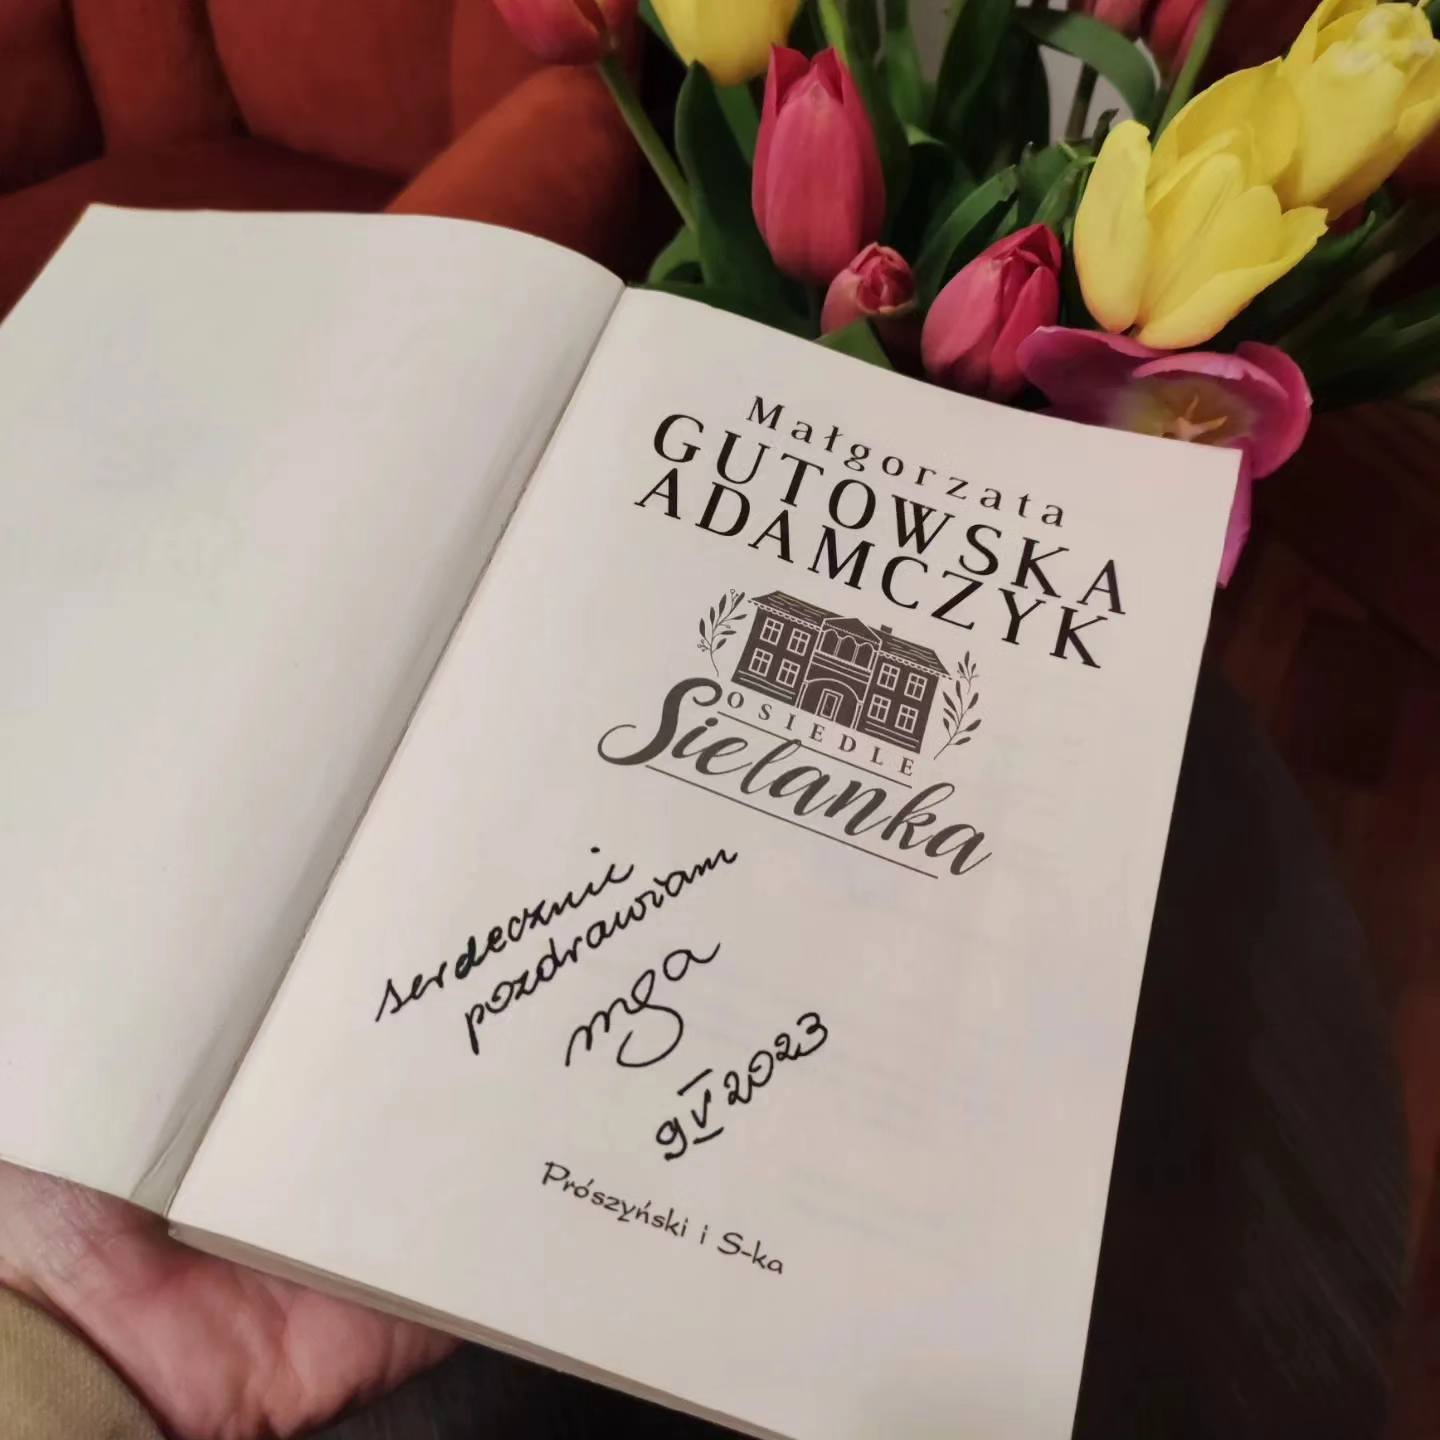 Małgorzata
GUTOWSKA
ADAMCZYK
OSIEDLE
Sielanka
serdecznie
pozdrawiam
mga
9 V 2023
Prószyński i S-ka